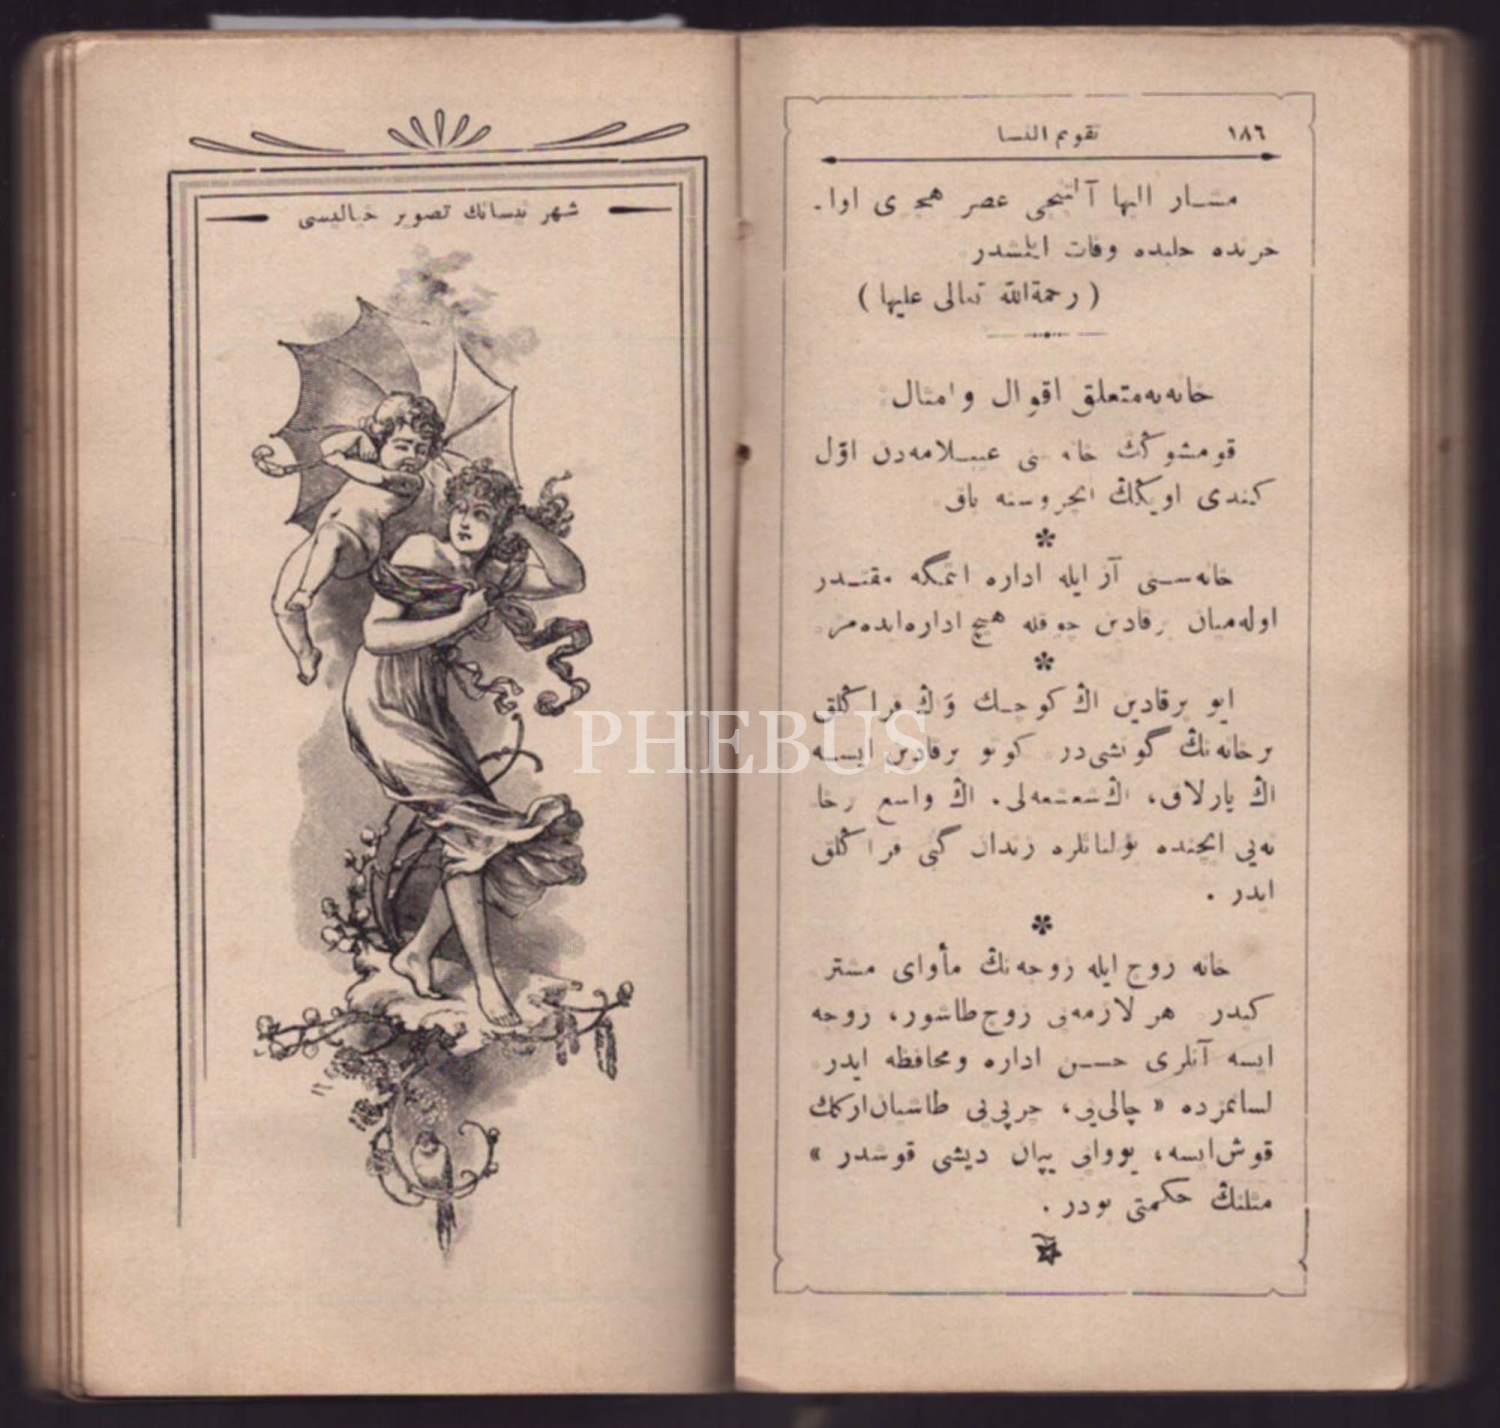 ١٨٦
تقويم النسا
مشار اليها آلتنجی عصر هجری اوا-
خرنده حلبده وفات ايتمشدر
( رحمة الله تعالی عليها )
خانه‌يه متعلق اقوال وامثال
قومشوڭك خانه‌سنی عيبلامه‌دن اوّل
كندی اويڭك ايچروسنه باق
خانه‌سنی آز ايله اداره ايتمكه مقتدر
اوله‌ميان برقادين چوقله هيچ اداره‌ايده‌مز
ايو برقادين اڭ كوچك وَاڭ قراڭلق
برخانه‌نڭ گونشی‌در كوتو برقادين ايسه
اڭ پارلاق، اڭ شعشعه‌لی، اڭ واسع برخا
نه‌يی ايچنده بولنانلره زندان گبی قراڭلق
ايدر .
خانه زوج ايله زوجه‌نڭ مأوای مشتر
كيدر هر لازمه‌يی زوج طاشور، زوجه
ايسه آنلری حسن اداره ومحافظه ايدر
لسانمزده « چالی‌يی، چرپی‌يی طاشيان اركك
قوش ايسه، يووايی يپان ديشی قوشدر »
مثلنڭ حكمتی بودر .
شهر نيسانك تصوير خياليسی
PHEBUS